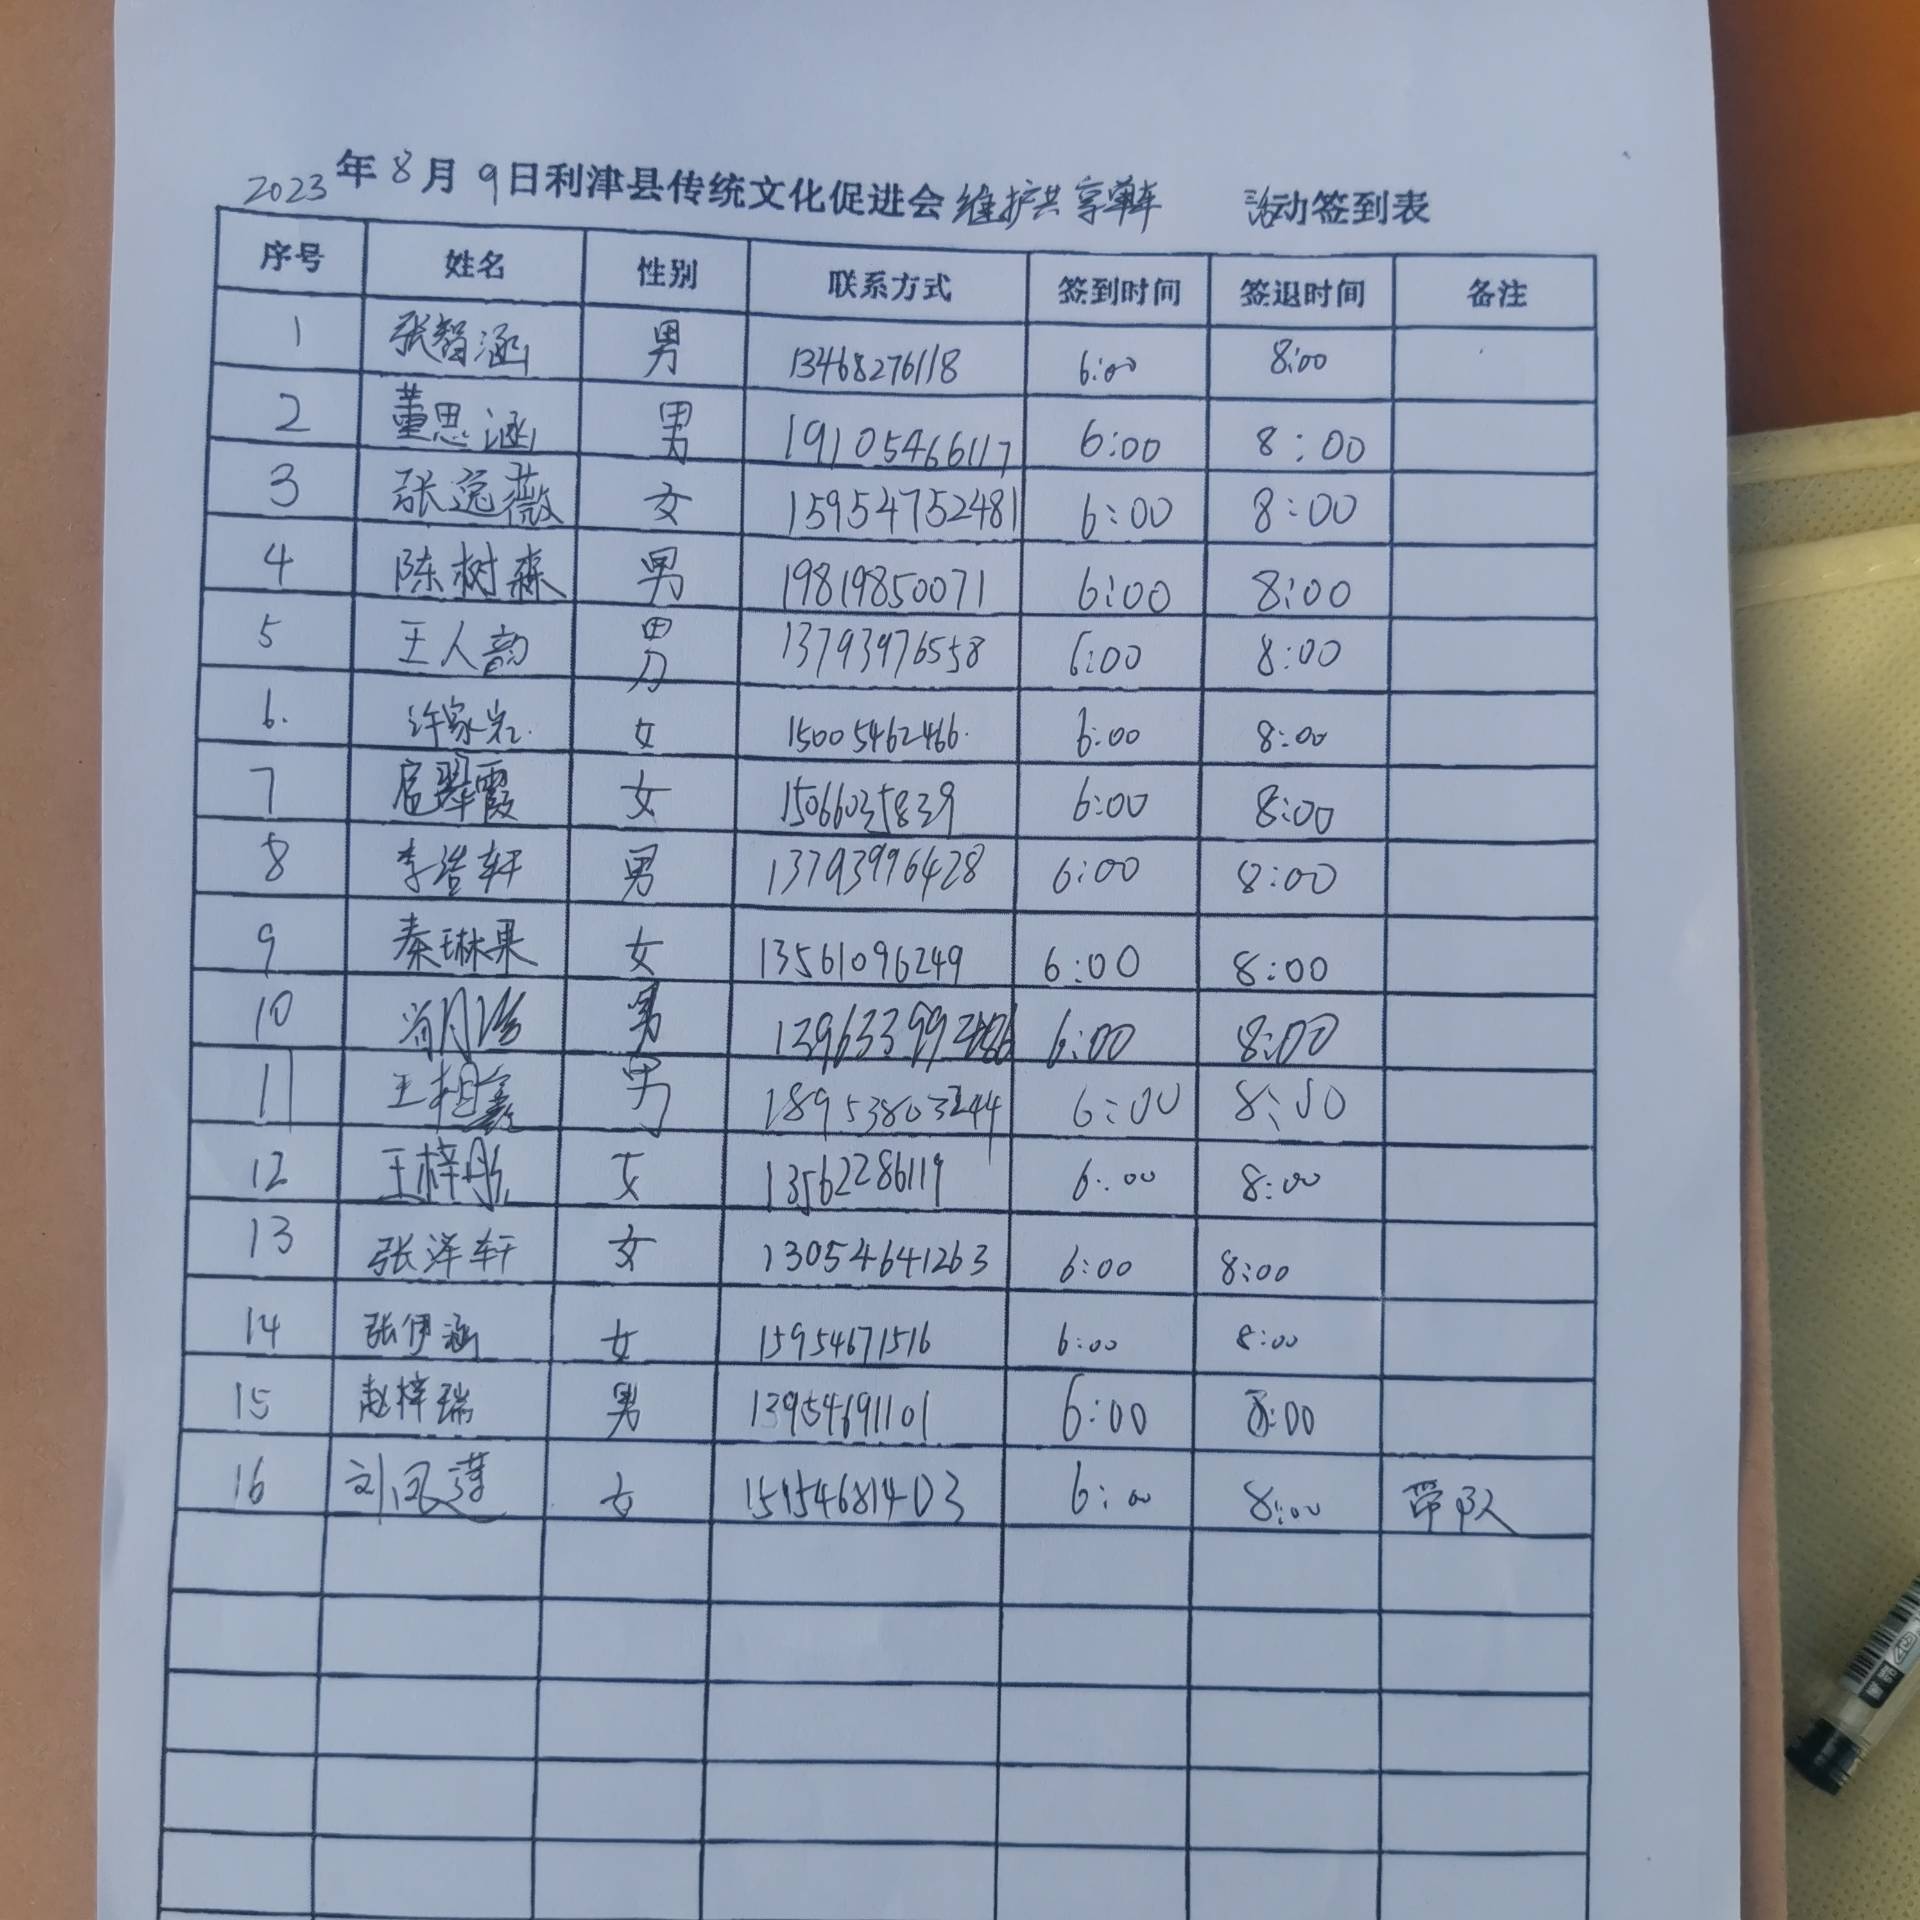 2023年8月9日利津县传统文化促进会维护共享单车 活动签到表
序号 姓名 性别 联系方式 签到时间 签退时间 备注
1 张智涵 男 13468276118 6:00 8:00
2 董思涵 男 19105466117 6:00 8:00
3 张逸薇 女 15954752481 6:00 8:00
4 陈树森 男 19819850071 6:00 8:00
5 王人韵 男 13793976558 6:00 8:00
6. 许家岩 女 15005462466. 6:00 8:00
7 扈翠霞 女 15066035839 6:00 8:00
8 李浩轩 男 13793996428 6:00 8:00
9 秦琳果 女 13561096249 6:00 8:00
10 男 6:00 8:00
11 王相鑫 男 18953803244 6:00 8:00
12 王梓彤 女 13562286119 6:00 8:00
13 张泽轩 女 13054641263 6:00 8:00
14 张伊涵 女 15954671516 6:00 8:00
15 赵梓瑞 男 13954691101 6:00 8:00
16 刘风莲 女 15154681403 6:00 8:00 带队